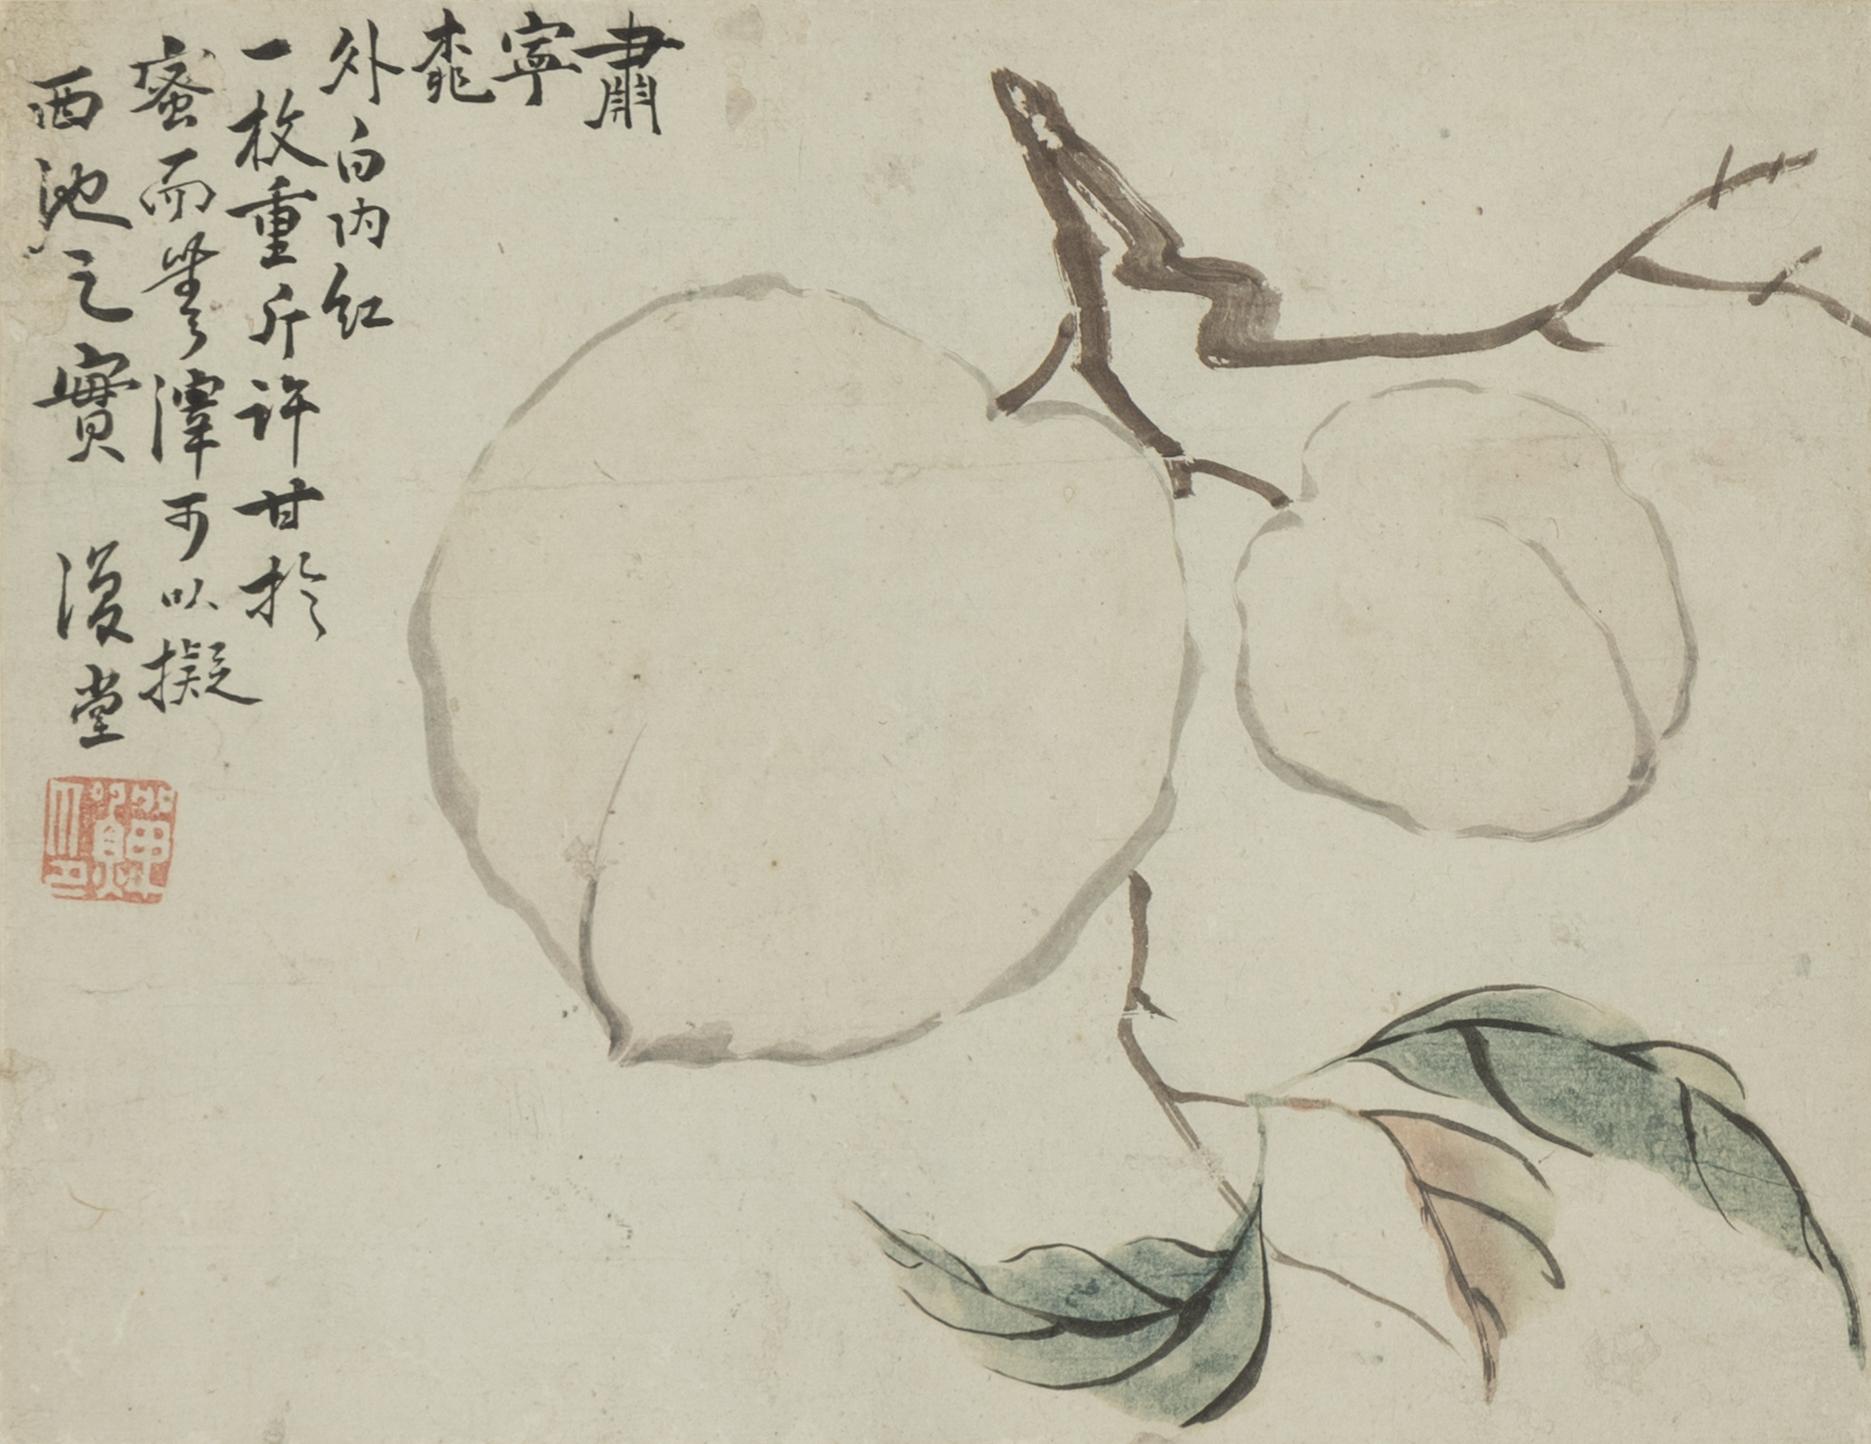 肅寧桃
外白内紅
一枚重斤許甘於
蜜而瑩澤可以擬
西池之實 復堂